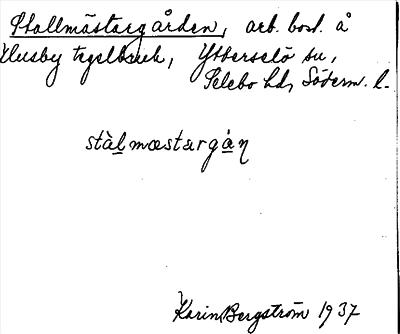 Stallmästargården, arb. bost. å
Husby tegelbruk, Ytterselö sn,
Selebo hd, Söderm. l.
stàlmæstargȧŋ
Karin Bergström 1937